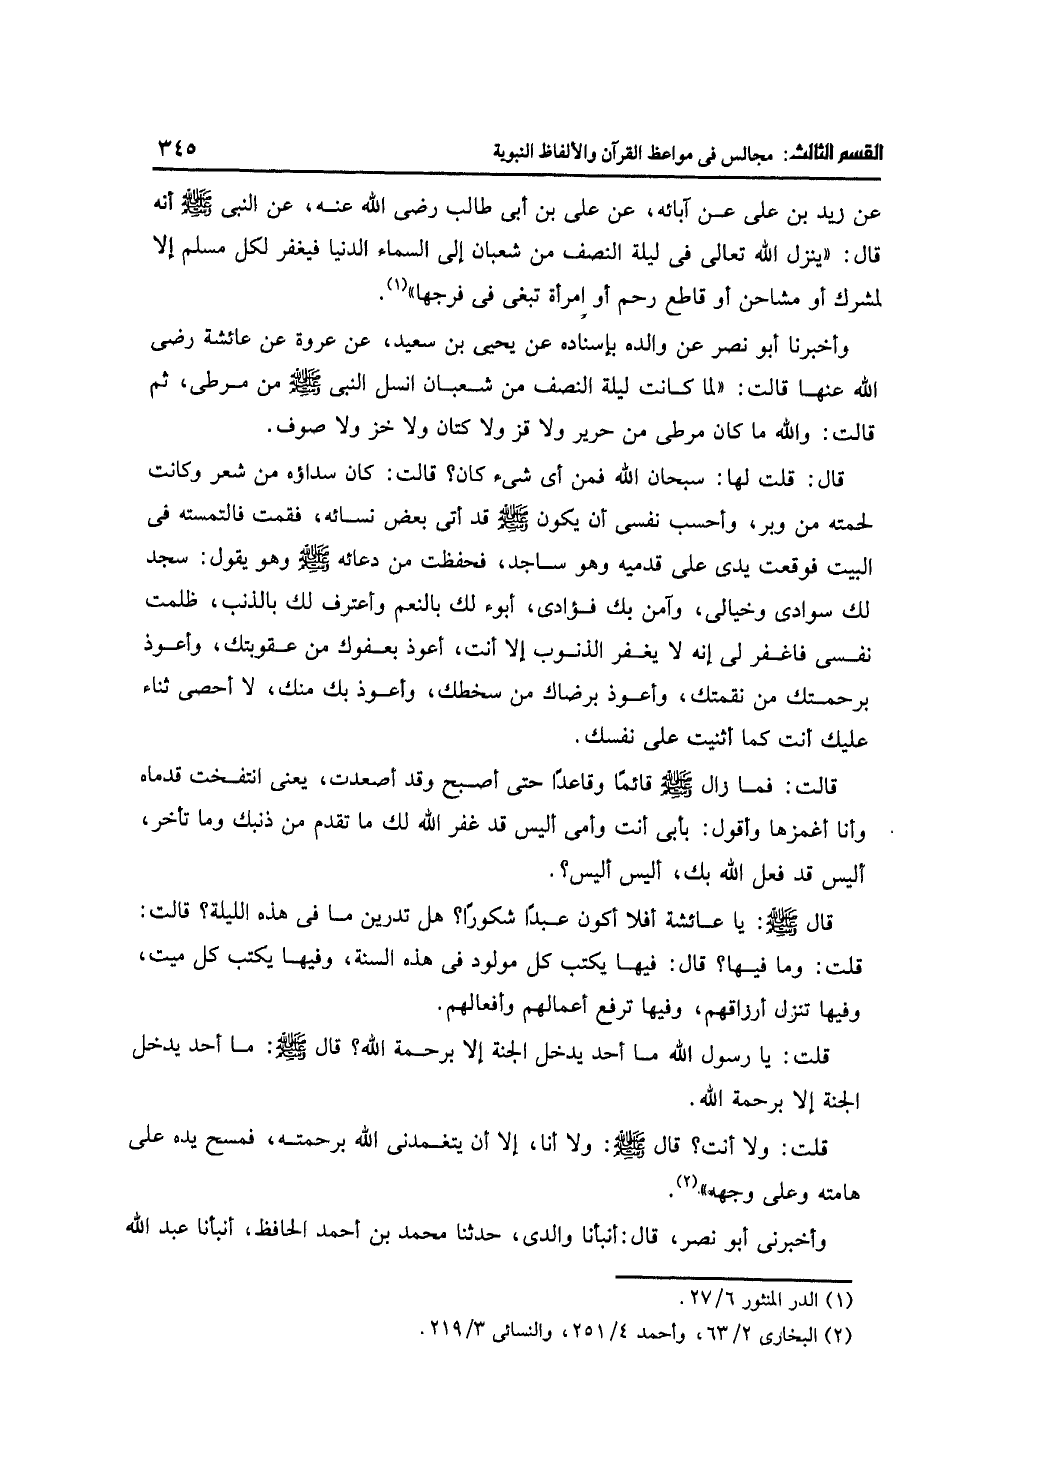 القسم الثالث: مجالس فى مواعظ القرآن والألفاظ النبوية ٣٤٥
عن زيد بن على عن آبائه، عن على بن أبى طالب رضى الله عنه، عن النبى ﷺ أنه
قال: «ينزل الله تعالى فى ليلة النصف من شعبان إلى السماء الدنيا فيغفر لكل مسلم إلا
لمشرك أو مشاحن أو قاطع رحم أو إمرأة تبغى فى فرجها»(١).
وأخبرنا أبو نصر عن والده بإسناده عن يحيى بن سعيد، عن عروة عن عائشة رضى
الله عنها قالت: «لما كانت ليلة النصف من شعبان انسل النبى ﷺ من مرطى، ثم
قالت: والله ما كان مرطى من حرير ولا قز ولا كتان ولا خز ولا صوف.
قال: قلت لها: سبحان الله فمن أى شىء كان؟ قالت: كان سداؤه من شعر وكانت
لحمته من وبر، وأحسب نفسى أن يكون ﷺ قد أتى بعض نسائه، فقمت فالتمسته فى
البيت فوقعت يدى على قدميه وهو ساجد، فحفظت من دعائه ﷺ وهو يقول: سجد
لك سوادى وخيالى، وآمن بك فؤادى، أبوء لك بالنعم وأعترف لك بالذنب، ظلمت
نفسى فاغفر لى إنه لا يغفر الذنوب إلا أنت، أعوذ بعفوك من عقوبتك، وأعوذ
برحمتك من نقمتك، وأعوذ برضاك من سخطك، وأعوذ بك منك، لا أحصى ثناء
عليك أنت كما أثنيت على نفسك.
قالت: فما زال ﷺ قائمًا وقاعدًا حتى أصبح وقد أصعدت، يعنى انتفخت قدماه
وأنا أغمزها وأقول: بأبى أنت وأمى أليس قد غفر الله لك ما تقدم من ذنبك وما تأخر،
أليس قد فعل الله بك، أليس أليس؟.
قال ﷺ: يا عائشة أفلا أكون عبدًا شكورًا؟ هل تدرين ما فى هذه الليلة؟ قالت:
قلت: وما فيها؟ قال: فيها يكتب كل مولود فى هذه السنة، وفيها يكتب كل ميت،
وفيها تنزل أرزاقهم، وفيها ترفع أعمالهم وأفعالهم.
قلت: يا رسول الله ما أحد يدخل الجنة إلا برحمة الله؟ قال ﷺ: ما أحد يدخل
الجنة إلا برحمة الله.
قلت: ولا أنت؟ قال ﷺ: ولا أنا، إلا أن يتغمدنى الله برحمته، فمسح يده على
هامته وعلى وجهه»(٢).
وأخبرنى أبو نصر، قال: أنبأنا والدى، حدثنا محمد بن أحمد الحافظ، أنبأنا عبد الله
(١) الدر المنثور ٢٧/٦.
(٢) البخارى ٦٣/٢، وأحمد ٢٥١/٤، والنسائى ٢١٩/٣.